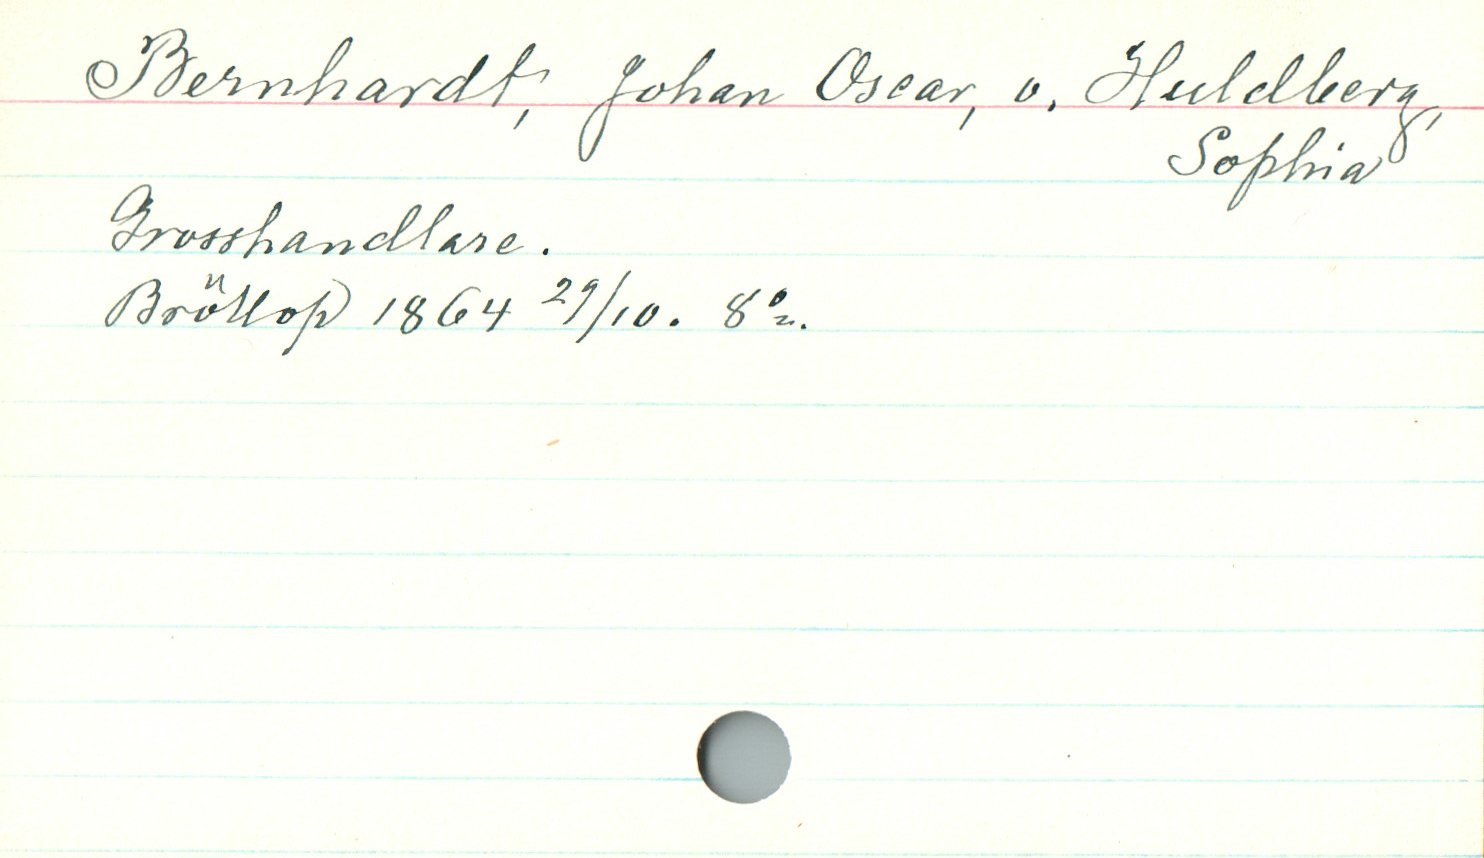 Bernhardt, Johan Oscar, o. Huldberg,
Sophia
Grosshandlare.
Bröllop 1864 29/10. 8:o